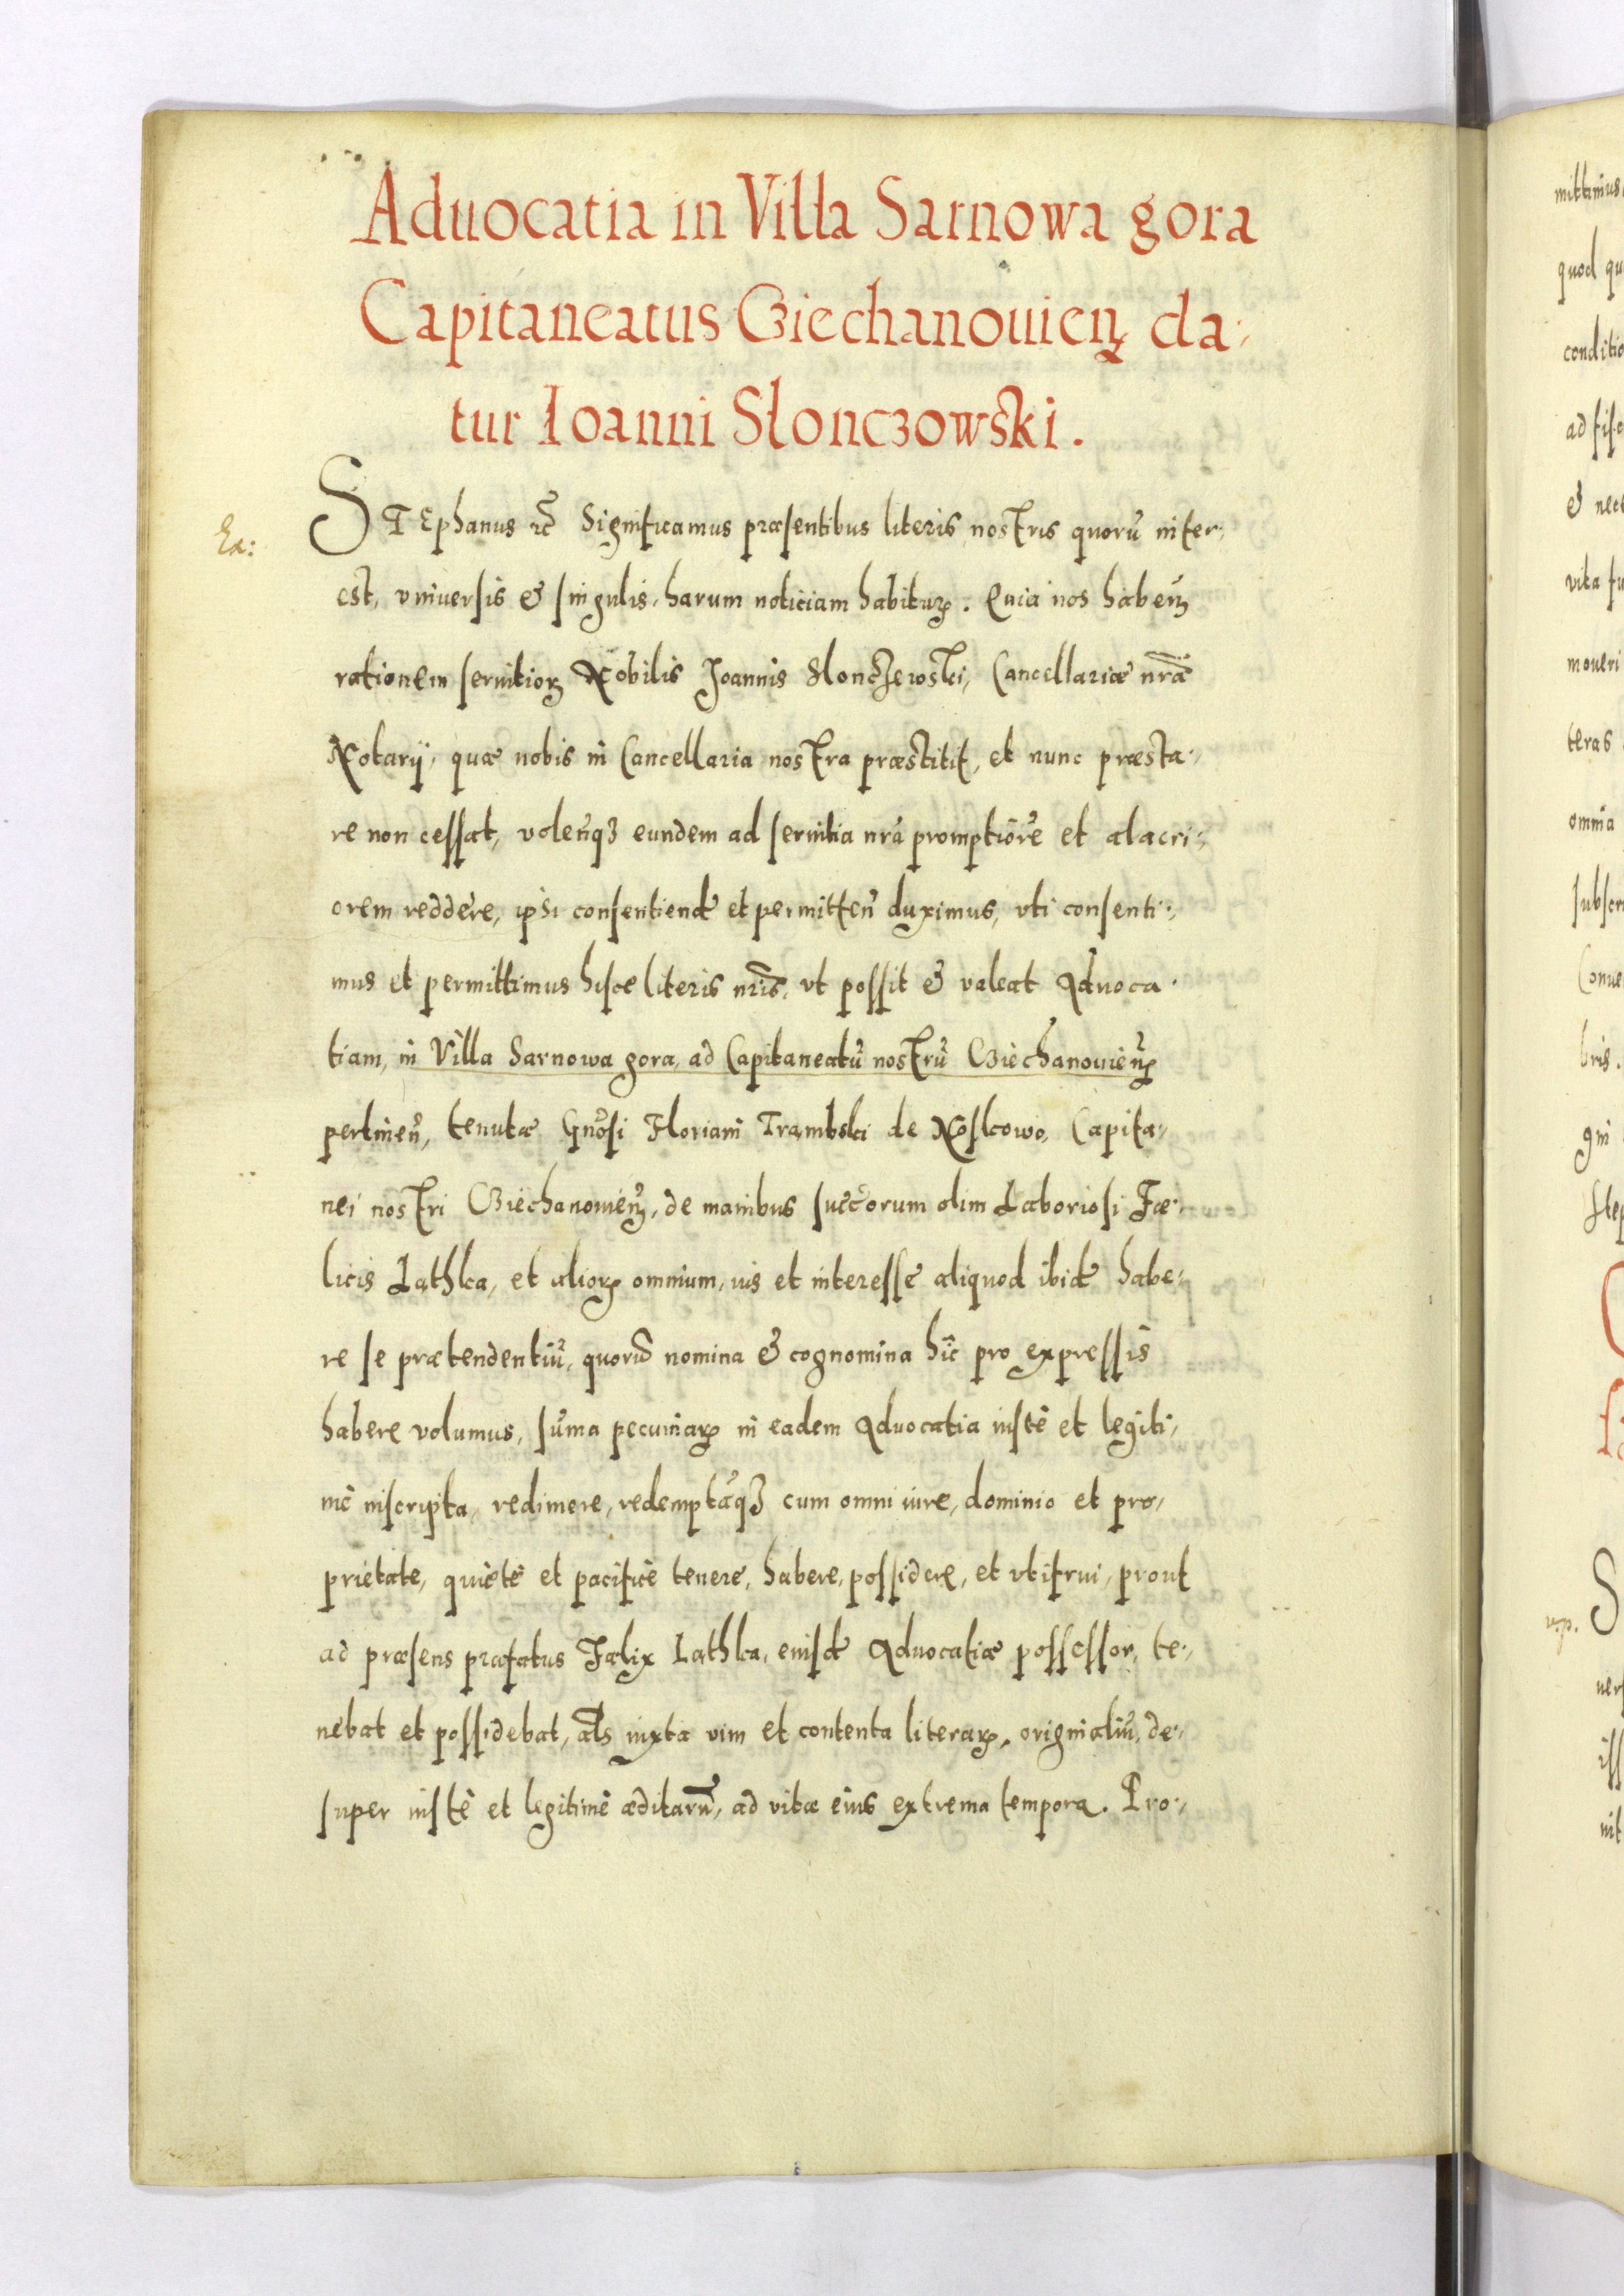 Aduocatia in Villa Sarnowa gora
Capitaneatus Cziechanouien̄ da-
tur Ioanni Slonczowski.
Ex:
STEphanus etc̄ Significamus præsentibus literis nostris quorū inter-
est, vniuersis & singulis, harum noticiam habiturꝫ. Quia nos haben̄
rationem seruitiorꝫ Nobilis Joannis Slonczewski, Cancellariæ nr̄æ
Notarij, quæ nobis in Cancellaria nostra præstitit, et nunc præsta-
re non cessat, volen̄qꝫ eundem ad seruitia nr̄a promptiorē et alacri-
orem reddere, ipsi consentiend̄ et permitten̄ duximus, vti consenti-
mus et permittimus hisce literis nr̄is, vt possit & valeat Aduoca-
tiam, in Villa Sarnowa gora, ad Capitaneatū nostrū Cziechanouien̄
pertinen̄, tenutæ Gn̄osi Floriani Trambski de Noskowo, Capita-
nei nostri Cziechanouien̄, de manibus succ̄orum olim Laboriosi Fæ-
licis Lathka, et aliorꝫ omnium, ius et interesse aliquod ibid̄ habe-
re se prætendentiū, quorū nomina & cognomina hic pro expressis
habere volumus, sūma pecuniarꝫ in eadem Aduocatia iustè et legiti-
mè inscripta, redimere, redemptāqꝫ cum omni iure, dominio et pro-
prietate, quietè et pacificè tenere, habere, possidere, et vtifrui, prout
ad præsens præfatus Fælix Lathka, eiusd̄ Aduocatiæ possessor, te-
nebat et possidebat, als̄ iuxta vim et contenta literarꝫ, originaliū, de-
super iustè et legitimè æditarū, ad vitæ eius extrema tempora. Pro-
mittimus
quod
ad
vita
moueri
teras
omnia
bris.